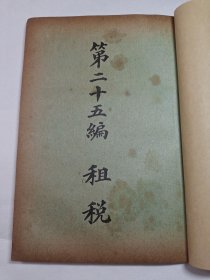 第二十五編　租税